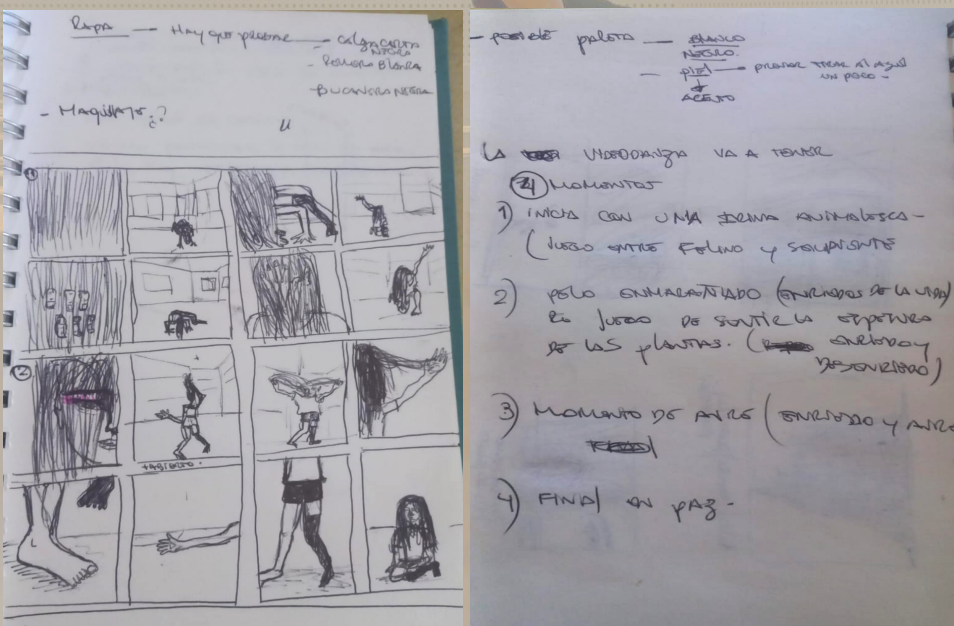 ROPA — HAY QUE PROBAR — CALZA CORTA
NEGRA
- REMERA BLANCA
- BUCANERA NEGRA
- MAQUILLAJE?
1
2
- POSIBLE PALETA — BLANCO
NEGRO
- PIEL — PROBAR TIRAR AL AZUL
UN POCO -
ACENTO
LA VIDEODANZA VA A TENER
4 MOMENTOS
1) INICIA CON UNA FORMA ANIMALESCA -
(JUEGO ENTRE FELINO Y SERPIENTE
2) PELO ENMARAÑADO (ENRIEDOS DE LA VIDA)
JUEGO DE SENTIR LA
DE LAS PLANTAS. (ENRIEDO Y
DESENRIEDO)
3) MOMENTO DE AIRE (ENRIEDO Y AIRE
4) FINAL EN PAZ -